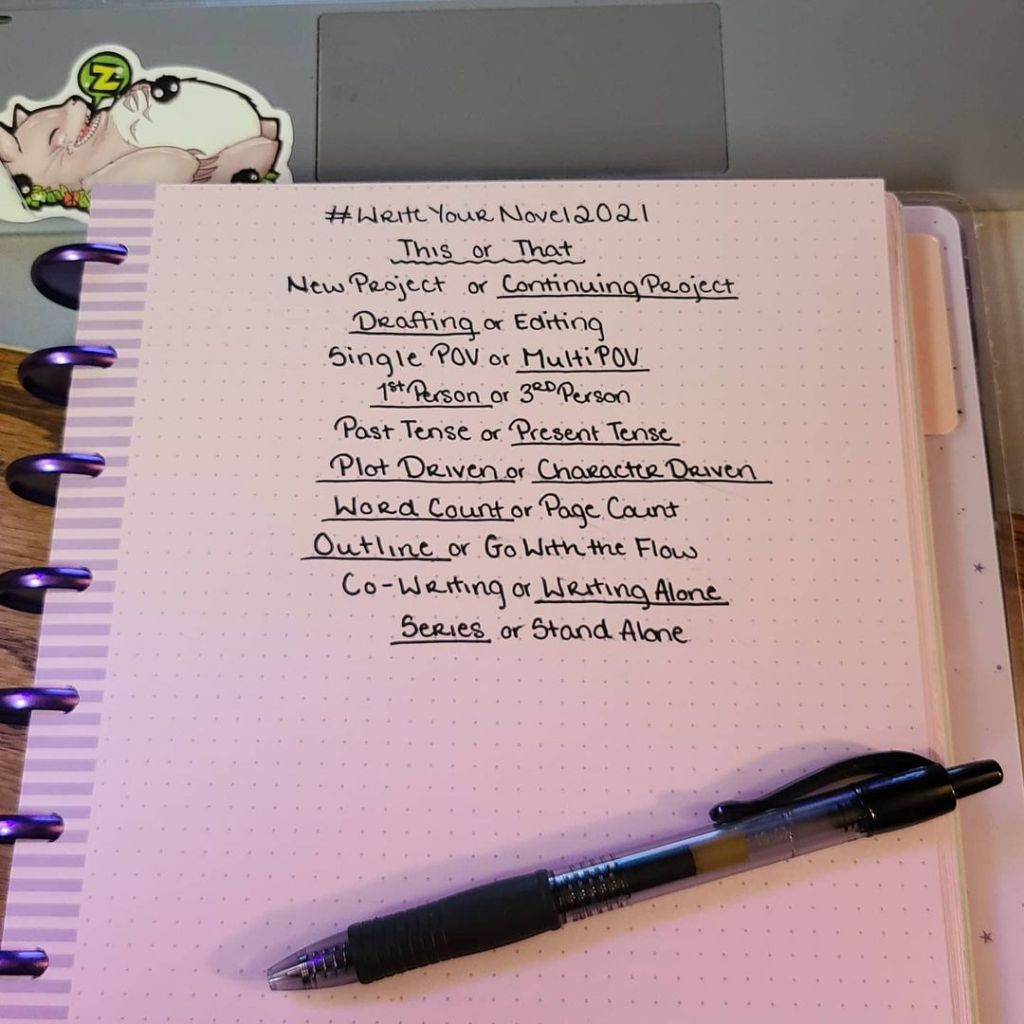 Z
#WriteYourNovel2021
This or That
New Project or Continuing Project
Drafting or Editing
Single POV or Multi POV
1st Person or 3RD Person
Past Tense or Present Tense
Plot Driven or Character Driven
Word Count or Page Count
Outline or Go With the Flow
Co-Writing or Writing Alone
Series or Stand Alone